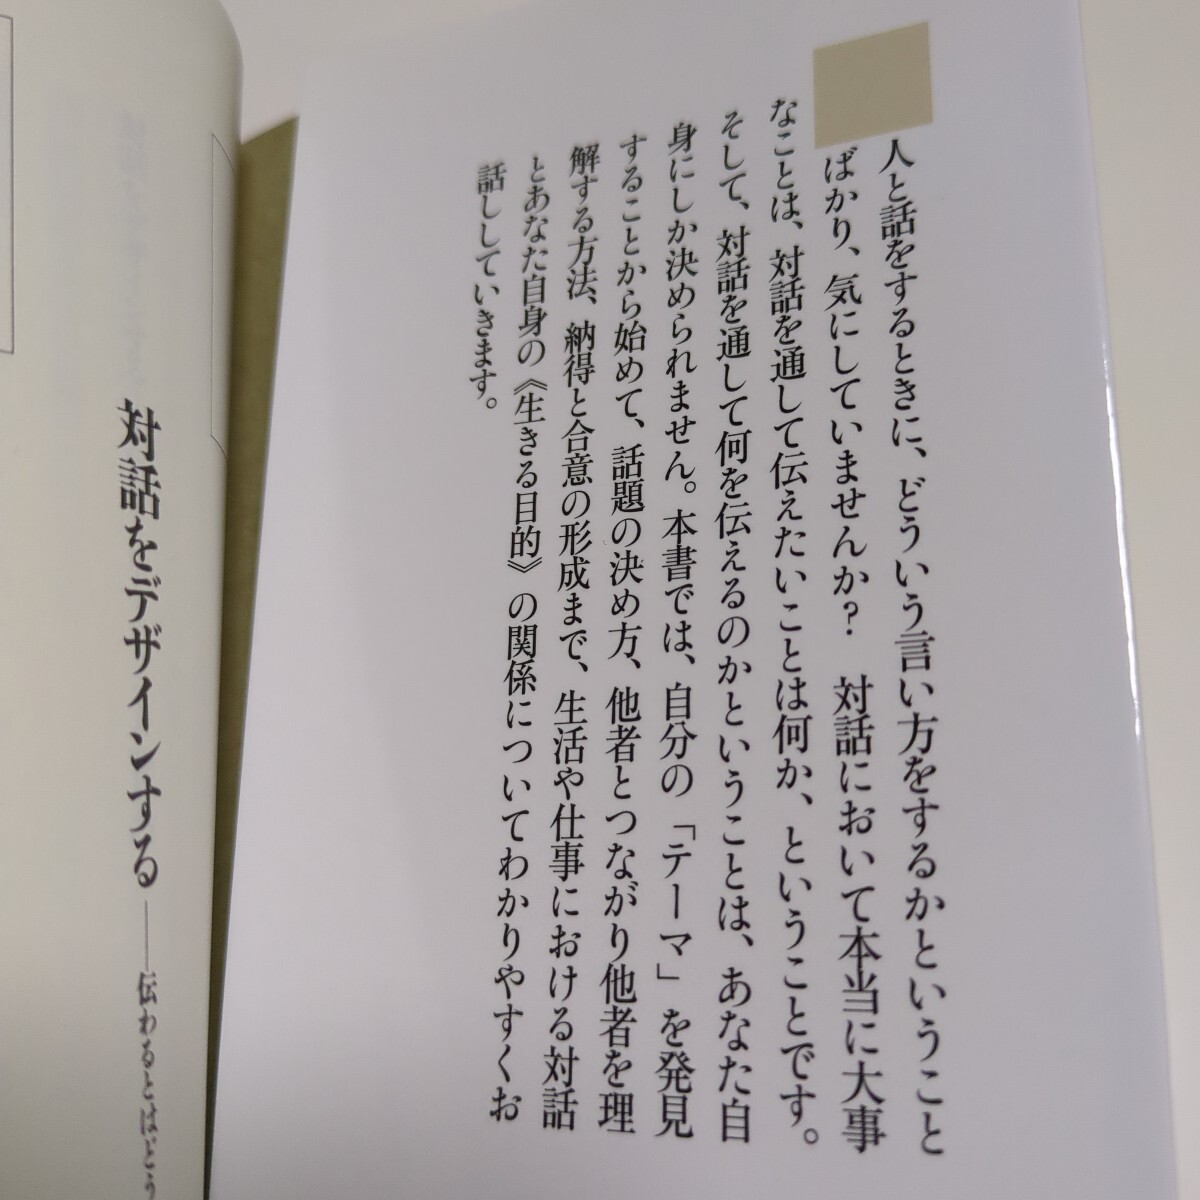 人と話をするときに、どういう言い方をするかということ
ばかり、気にしていませんか？　対話において本当に大事
なことは、対話を通して伝えたいことは何か、ということです。
そして、対話を通して何を伝えるのかということは、あなた自
身にしか決められません。本書では、自分の「テーマ」を発見
することから始めて、話題の決め方、他者とつながり他者を理
解する方法、納得と合意の形成まで、生活や仕事における対話
とあなた自身の《生きる目的》の関係についてわかりやすくお
話ししていきます。
対話をデザインする――伝わるとはどう